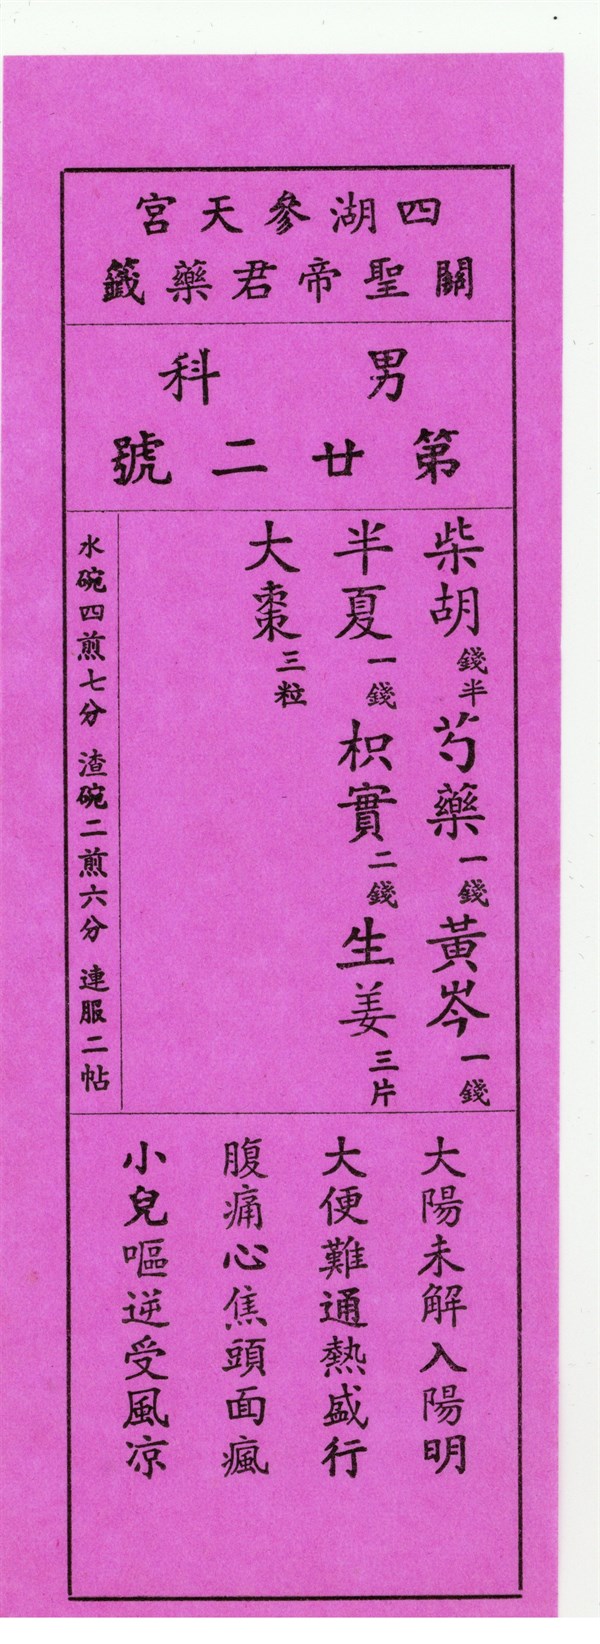 四湖參天宮
關聖帝君藥籤
男科
第廿二號
柴胡錢半芍藥一錢黃岑一錢
半夏一錢枳實二錢生姜三片
大棗三粒
水碗四煎七分 渣碗二煎六分 連服二帖
大陽未解入陽明
大便難通熱盛行
腹痛心焦頭面瘋
小兒嘔逆受風凉